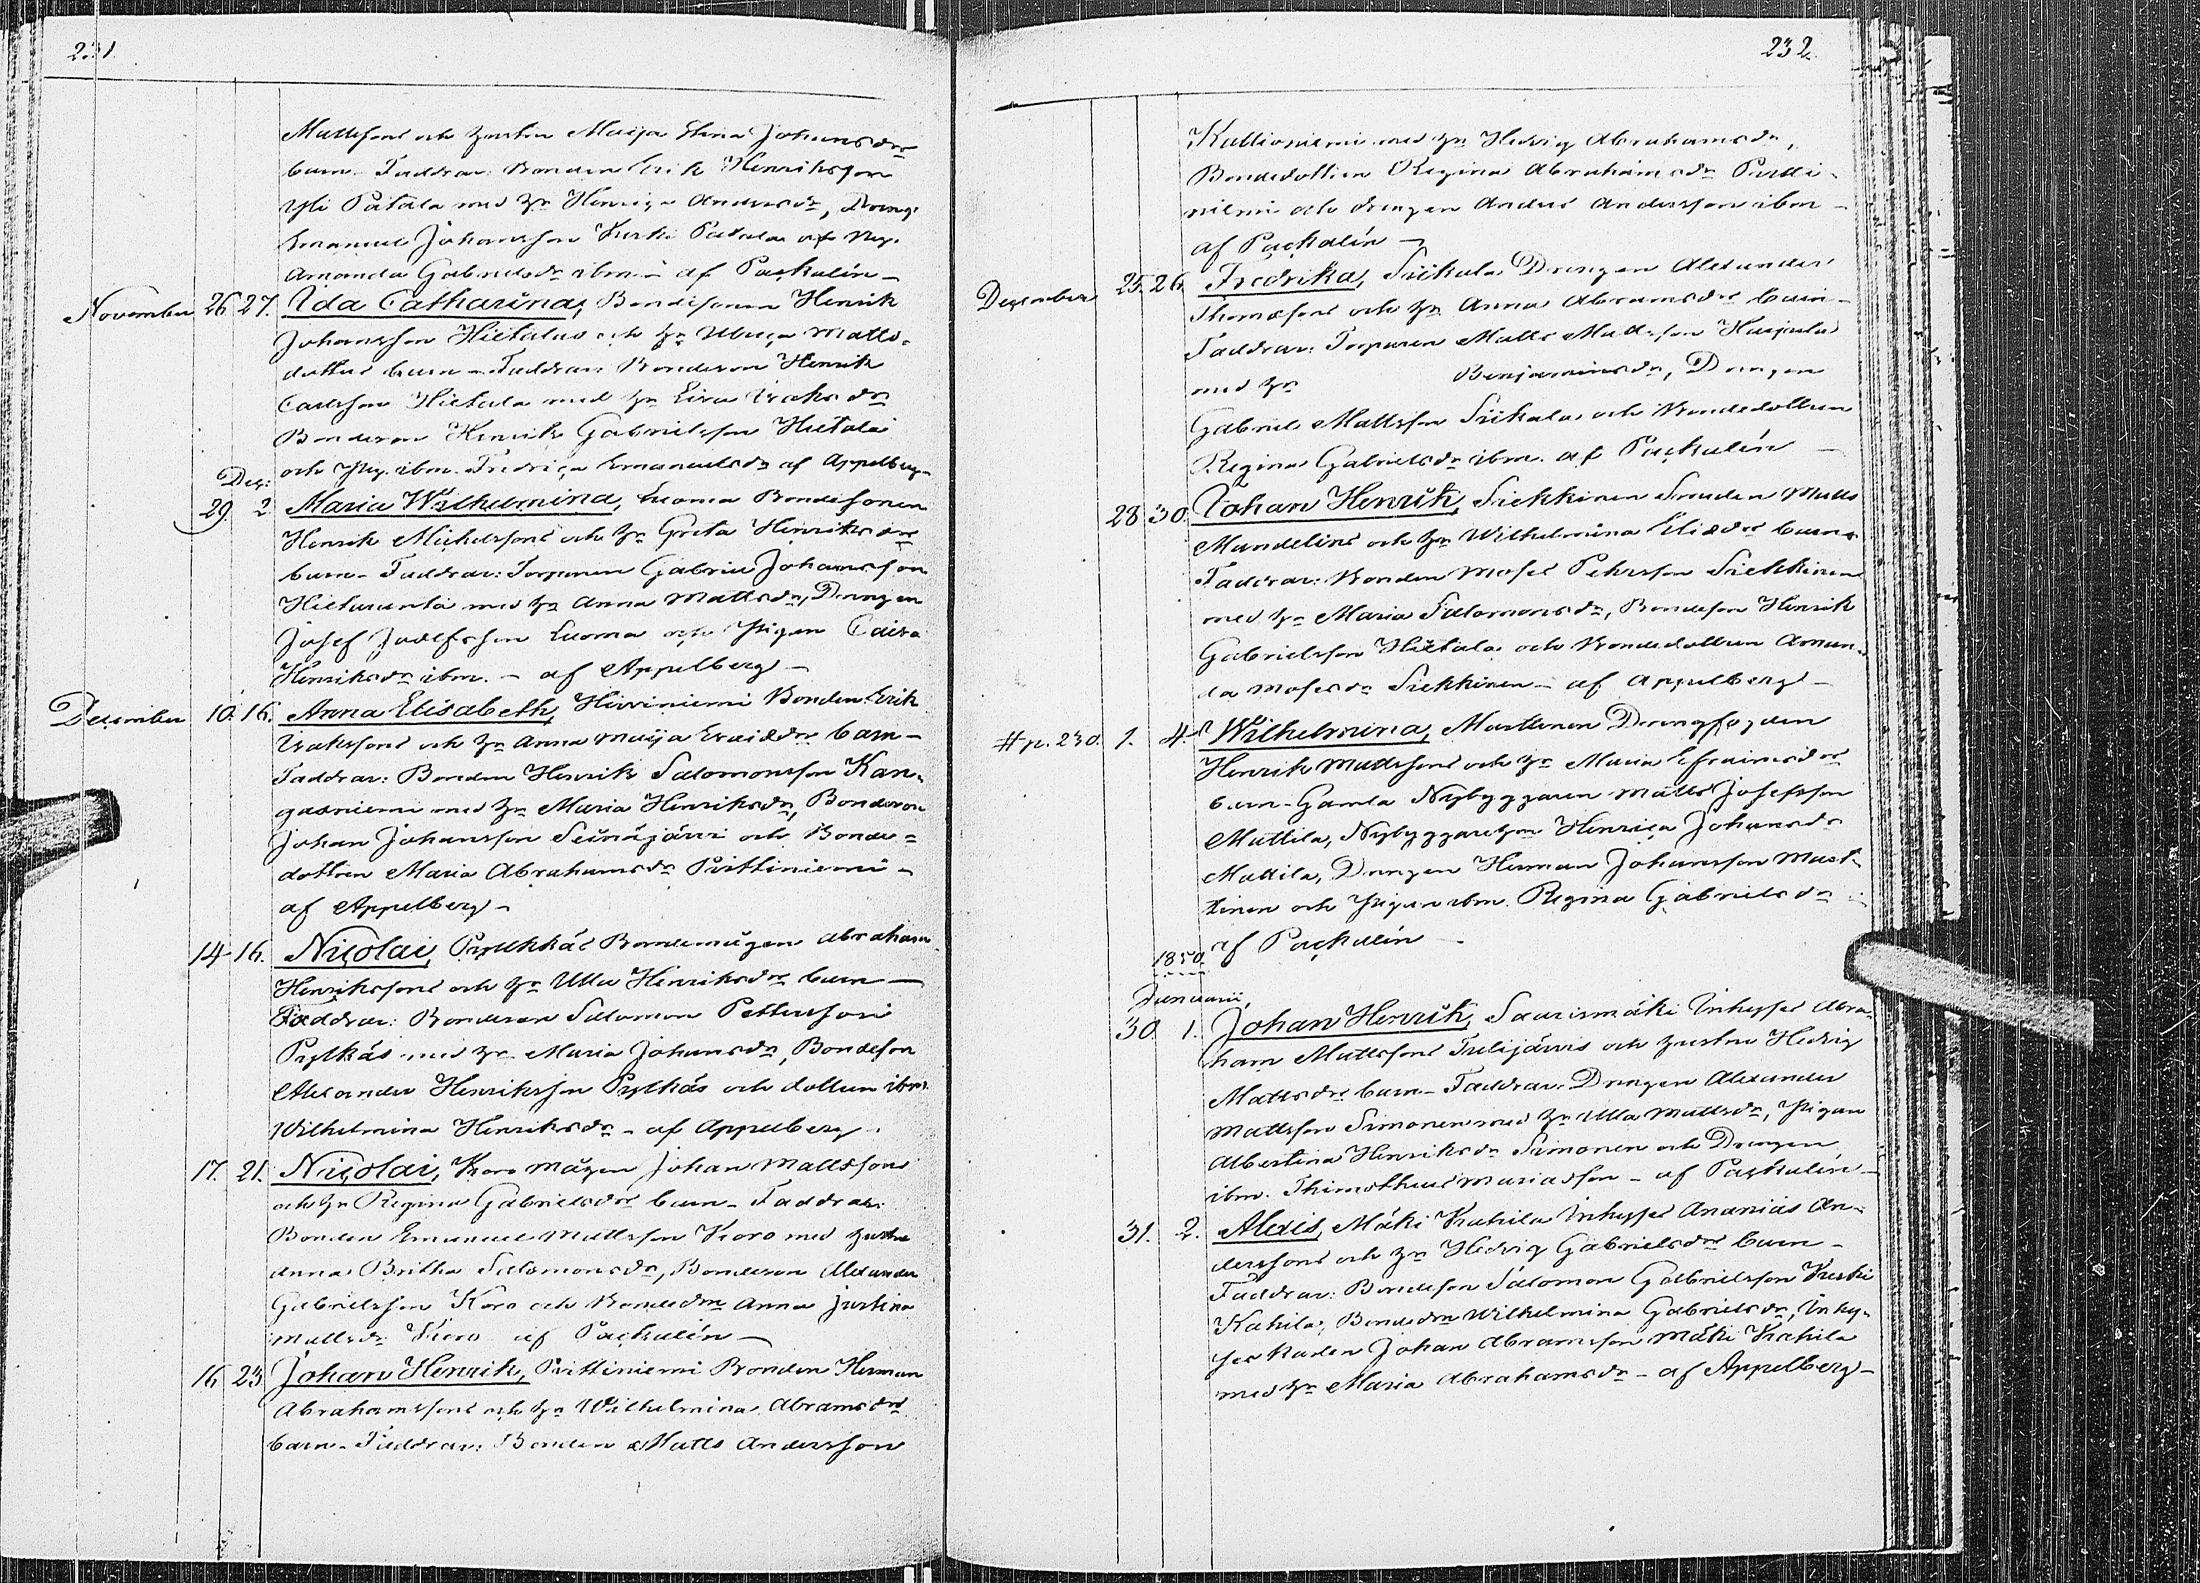 231.
Mattsons och hustru Maija Elina Johansdrs
barn. Faddrar: Bonden Erik Henriksson
Yli Patala med h. Henrica Andersdr, Dreng.
Emanuel Johansson Keski Patala och Pig.
Amanda Gabrielsdr ibm – af Paçkalén –
November 26 27. Ida Catharina, Bondesonen Henrik
Johansson Hietalas och h. Ulrica Matts-
dotters barn – Faddrar: Bondeson Henrik
Carlsson Hietala med h. Lisa Isaksdr
Bondeson Henrik Gabrielsson Hietala
och Pig. ibm. Fredrica Emanuelsdr af Appelberg –
Dec:
29. 2. Maria Wilhelmina, Luoma Bondesonen
Henrik Michelssons och h. Greta Henriksdrs
barn – Faddrar: Torparen Gabriel Johansson
Hietaranta med h. Anna Mattsdr, Drengen
Josef Josefsson Luoma och Pigan Caisa
Henriksdr ibm. – af Appelberg –
December 10. 16. Anna Elisabeth, Hirviniemi Bonden Erik
Isakssons och h. Anna Maija barn –
Faddrar: Bonden Henrik Salomonsson Kan-
gasniemi med h. Maria Henriksdr, Bondeson
Johan Johansson Seinäjärvi och Bonde-
dottren Maria Abrahamsdr Pirttiniemi –
af Appelberg –
14 16. Nicolai, Pylkkäs Bondemågen Abraham
Henrikssons och h. Ulla Henriksdrs barn –
Faddrar: Bondeson Salomon Pettersson
Pylkäs med h. Maria Johansdr, Bondeson
Alexander Henriksson Pylkäs och dottren ibm.
Wilhelmina Henriksdr – af Appelberg.
17. 21. Nicolai, Koro mågen Johan Mattssons
och h. Regina Gabrielsdrs barn – Faddrar:
Bonden Emanuel Mattsson Koro med hustru
Anna Britha Salomonsdr, Bondeson Alexander
Gabrielsson Koro och Bondedr Anna Justina
Mattsdr Koro af Paçkalén –
16 23. Johan Henrik, Pirttiniemi Bonden Herman
Abrahamssons och h. Wilhelmina Abramsdrs
barn – Faddrar: Bonden Matts Andersson
232
Kallioniemi med h. Hedvig Abrahamsdr,
Bondedottren Regina Abrahamsdr Pirtti-
niemi och drengen Anders Andersson ibm –
af Paçkalén –
December 25. 26. Fredrika, Siikala Drengen Alexander
Thomæsons och h. Anna Abramsdrs barn –
Faddrar: Torparen Matts Mattsson Harjula
med h. Benjaminsdr, Drengen
Gabriel Mattsson Siikala och Bondedottren
Regina Gabrielsdr ibm. af Paçkalén –
28 30. Johan Henrik, Siekkinen Smeden Matts
Mandelins och h. Wilhelmina Eliædrs barn –
Faddrar: Bonden Moses Pehrsson Siekkinen
med h. Maria Salomonsdr, Bondeson Henrik
Gabrielsson Hietala och Bondedottren Aman-
da Mosesdr Siekkinen – af Appelberg –
# p. 230. 1. 4. Wilhelmina, Marttinen Drengfogden
Henrik Mattssons och h. Maria Efraimsdrs
barn – Gamla Nybyggaren Matts Josefsson
Mattila, Nybyggarehn Henrica Johansdr
Mattila, Drengen Herman Johansson Mart-
tinen och Pigan ibm. Regina Gabrielsdr –
af Paçkalén –
1850.
Januarii,
30. 1. Johan Henrik, Saarismäki Inhyses Abra-
ham Mattssons Tulijärvis och hustru Hedvig
Mattsdrs barn – Faddrar: Drengen Alexander
Mattsson Simonen med h. Ulla Mattsdr, Pigan
Albertina Henriksdr Simonen och Drengen
ibm. Thimotheus Mariasson – af Paçkalén –
31. 2. Alexis, Mäki Kahila Inhyses Ananias An-
derssons och h. Hedvig Gabrielsdrs barn –
Faddrar: Bondeson Salomon Gabrielsson Keski
Kahila, Bondedr Wilhelmina Gabrielsdr, Inhy-
ses karlen Johan Abramsson Mäki Kahila
med h. Maria Abrahamsdr – af Appelberg –